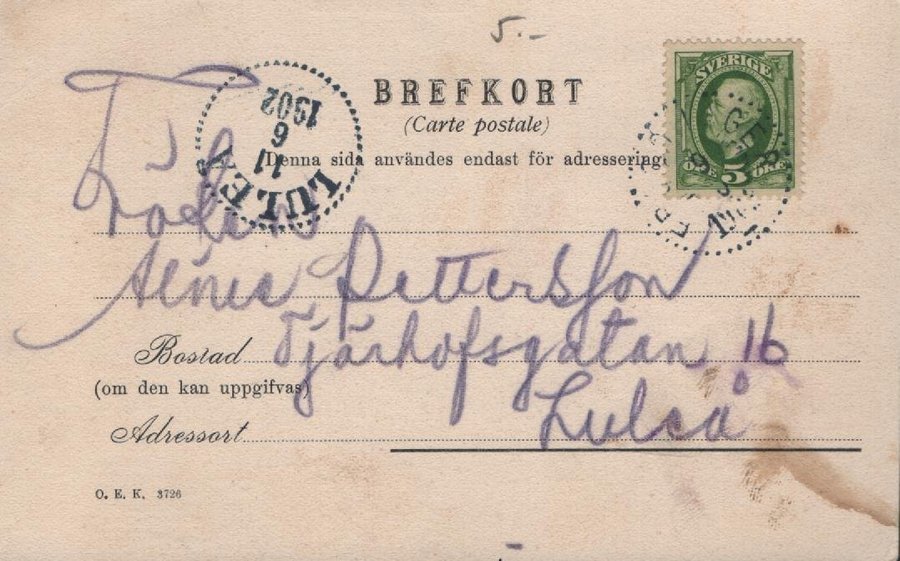 5.-
BREFKORT
(Carte postale)
Denna sida användes endast för adressering
SVERIGE
5 ÖRE
LULEÅ
11 6
1902
Fröken
Pettersson
Bostad Tjärhofsgatan 16
(om den kan uppgifvas)
Adressort Luleå
O. E. K. 3726